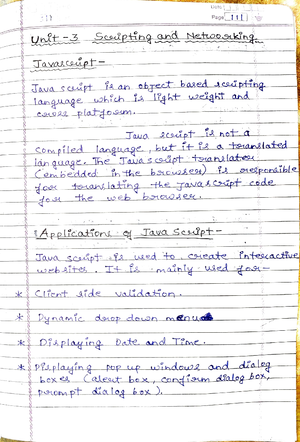 Page 11
Unit-3 Scripting and Networking
Javascript -
Java script is an object based scripting
language which is light weight and
cross platform.
Java script is not a
compiled language, but it is a translated
language. The Java script translator
(embedded in the browser) is responsible
for translating the javascript code
for the web browser.
Applications of Java Script -
Java script is used to create interactive
websites. It is mainly used for -
* Client side validation.
* Dynamic drop down menus
* Displaying Date and Time.
* Displaying pop up windows and dialog
boxes (alert box, confirm dialog box,
prompt dialog box).